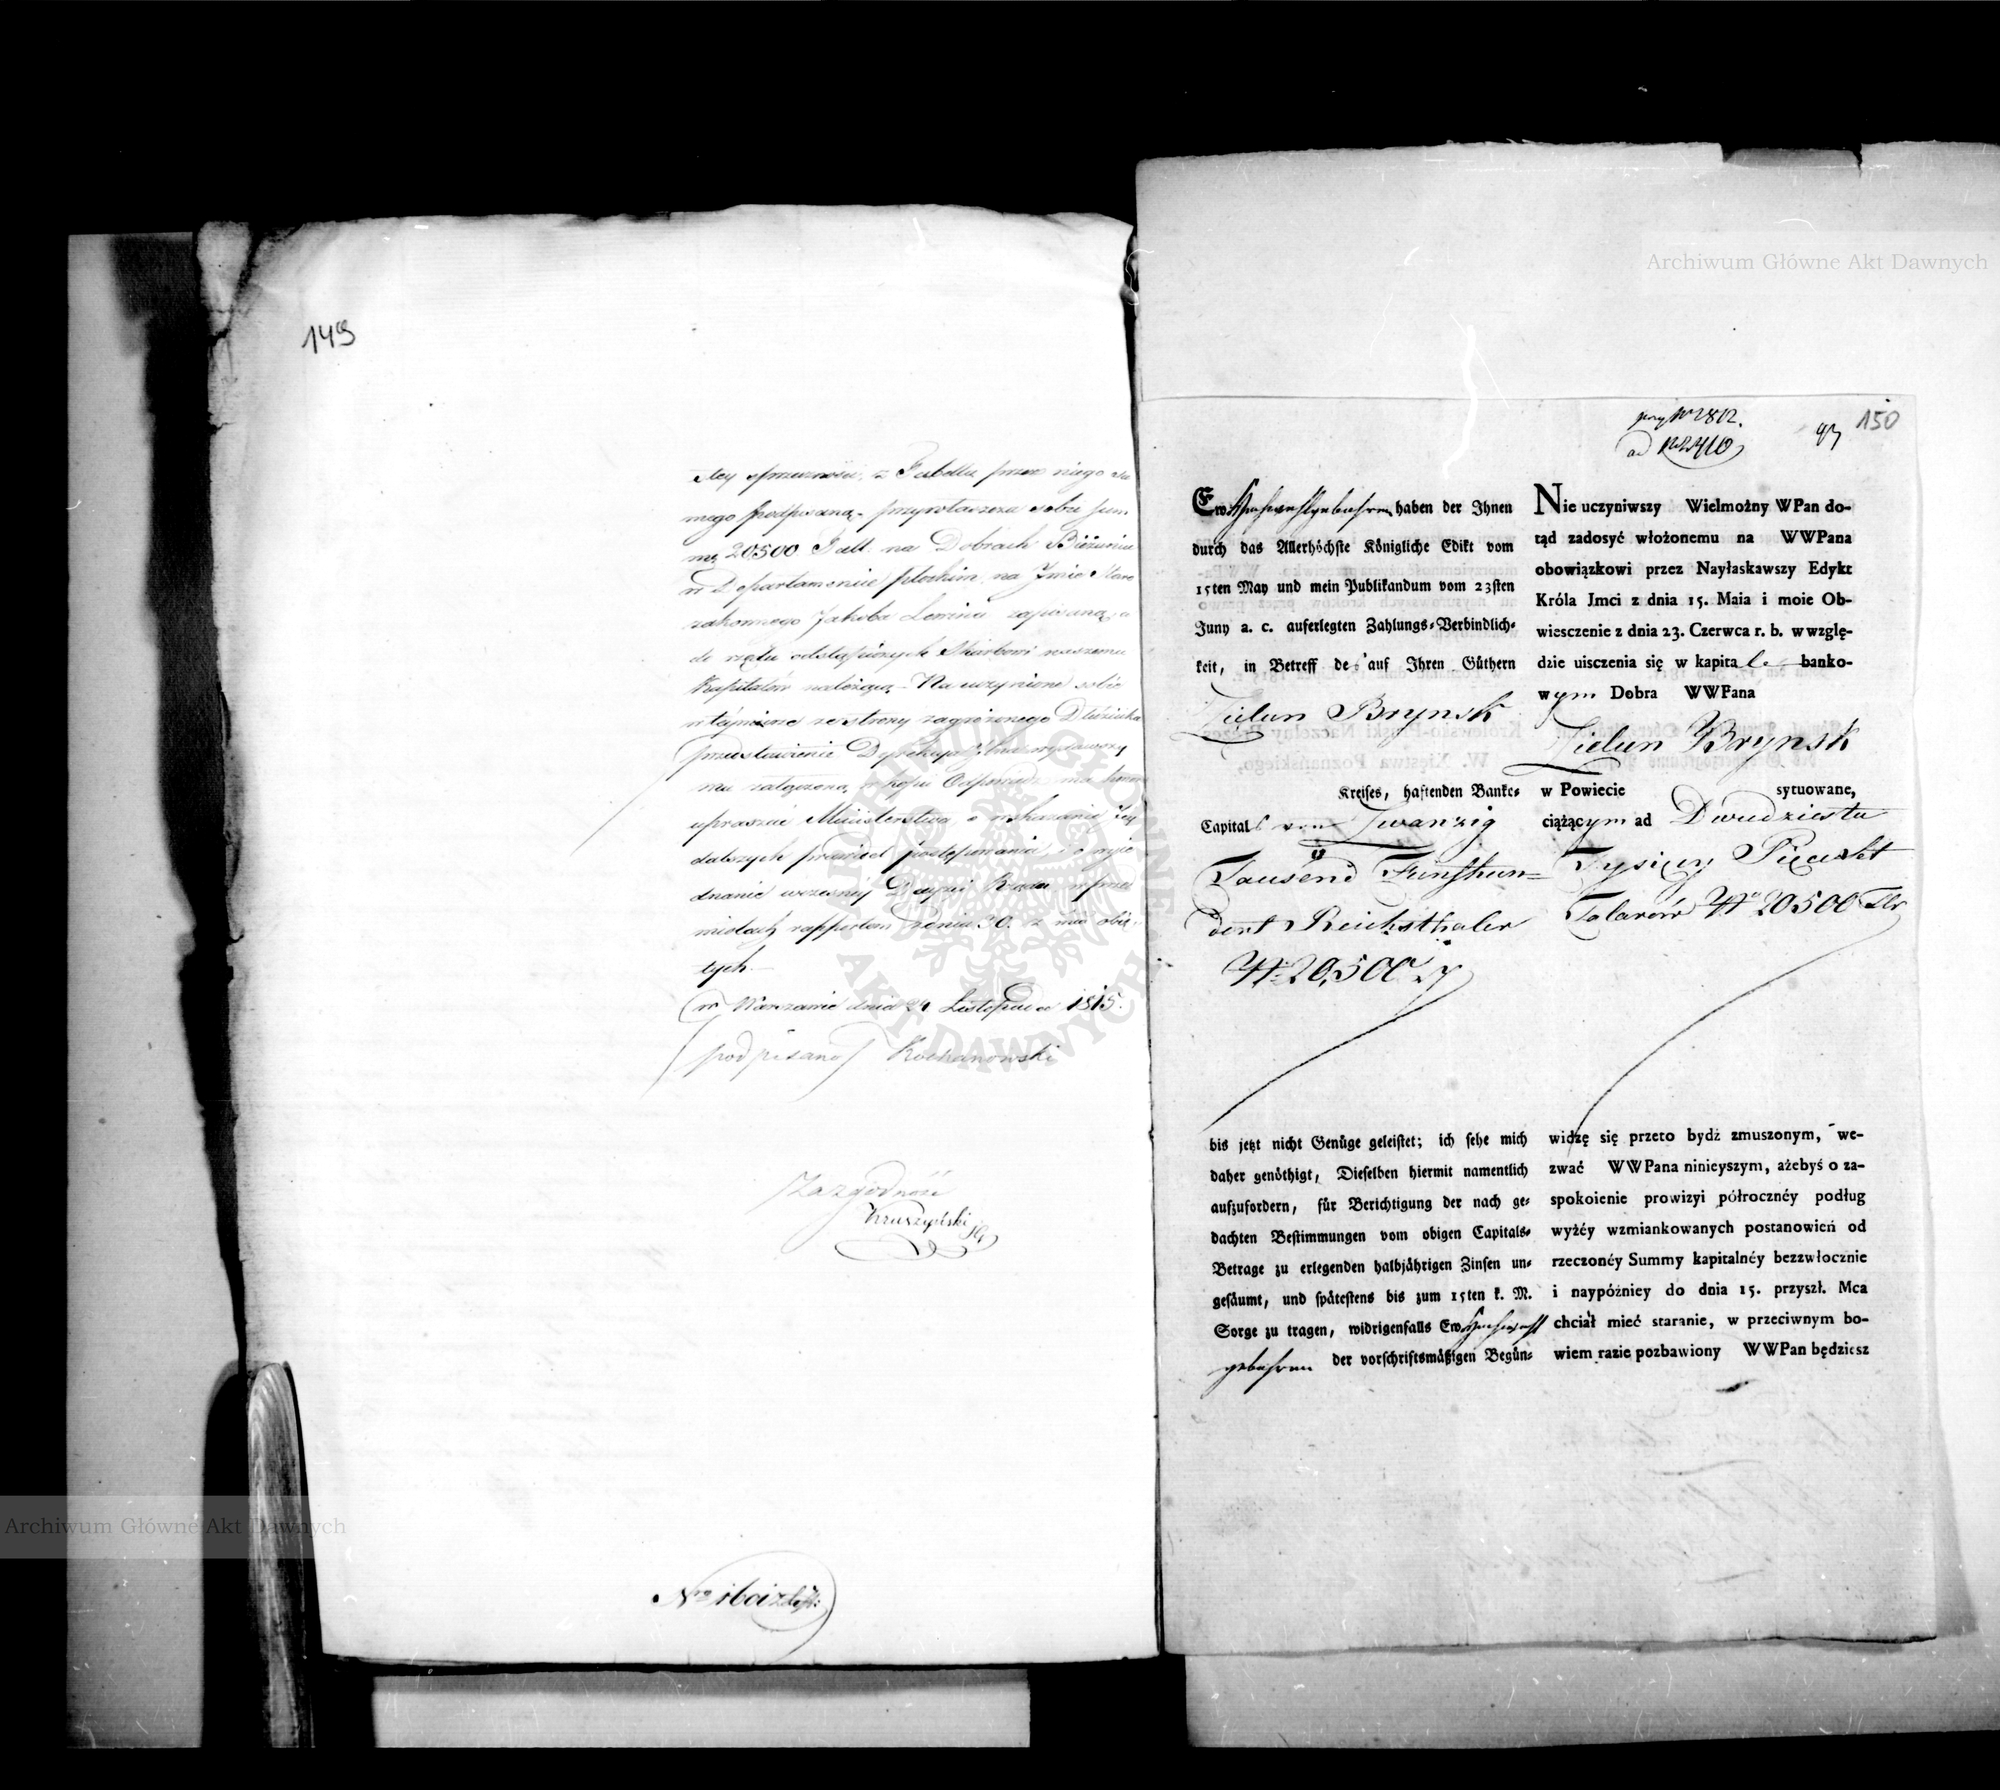 149
tey sprzeczności, z Tabellą przez niego sa
mego podpisaną, przywłaszcza sobie Sum
mę 20500 Tall. na Dobrach Bieżuniu
w Departamencie płockim, na Imie Staro
zakonnego Jakoba Lewina zapisaną, a
do rzędu odstąpionych Skarbowi naszemu
Kapitałów należącą. Na uczynione sobie
w tey mierze ze strony zagrożonego Dłużnika
przedstawienie Dyrekcya Jlna wydawszy
mu załączoną w kopii Odpowiedź ma honor
upraszać Ministerstwa, o wskazanie Jey
dalszych prawideł postępowania, i o wyie
dnanie wczesnéy Decyzyi Rządu w przed
miotach rapportem Dnia 30. z. m. obię-
tych.
w Warszawie dnia 24 Listopada 1815.
podpisano) Kochanowski
Za zgodność
Kruszyński
Nro 16012
150
przy Nr 2812.
ad
93
Ew. Hochwohlgebohren haben der Ihnen
durch das Allerhöchste Königliche Edikt vom
15ten May und mein Publikandum vom 23sten
Juny a. c. auferlegten Zahlungs-Verbindlich-
keit, in Betreff des auf Ihren Güthern
Zielun Brynsk
Kreises, haftenden Banko-
Capitals von Zwanzig
Tausend Funfhun-
dert Reichsthaler
20,500
bis jetzt nicht Genüge geleistet; ich sehe mich
daher genöthigt, Dieselben hiermit namentlich
aufzufordern, für Berichtigung der nach ge-
dachten Bestimmungen vom obigen Capitals-
Betrage zu erlegenden halbjährigen Zinsen un-
gesäumt, und spätestens bis zum 15ten k. M.
Sorge zu tragen, widrigenfalls Ew. Hochwohl
gebohren der vorschriftsmäßigen Begün-
Nie uczyniwszy Wielmożny WPan do-
tąd zadosyć włożonemu na WWPana
obowiązkowi przez Nayłaskawszy Edykt
Króla Jmci z dnia 15. Maia i moie Ob-
wiesczenie z dnia 23. Czerwca r. b. wwzglę-
dzie uisczenia się w kapitale banko-
wym Dobra WWPana
Zielun Brynsk
w Powiecie sytuowane,
ciążącym ad Dwudziestu
Tysięcy Pięćset
Talarów 20500 Tlr
widzę się przeto bydź zmuszonym, we-
zwać WWPana ninieyszym, ażebyś o za-
spokoienie prowizyi półrocznéy podług
wyżéy wzmiankowanych postanowień od
rzeczonéy Summy kapitalnéy bezzwłocznie
i naypóźniey do dnia 15. przyszł. Mca
chciał mieć staranie, w przeciwnym bo-
wiem razie pozbawiony WWPan będziesz
Archiwum Główne Akt Dawnych
Archiwum Główne Akt Dawnych
ARCHIWUM GŁÓWNE AKT DAWNYCH